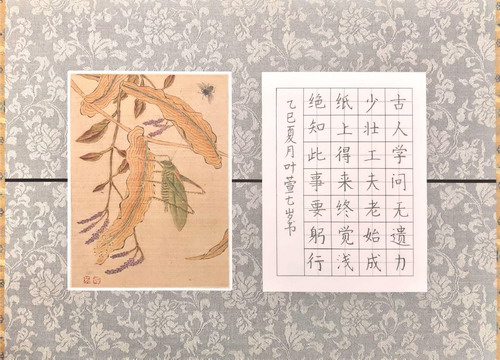 古人学问无遗力
少壮工夫老始成
纸上得来终觉浅
绝知此事要躬行
乙巳夏月叶萱七岁书